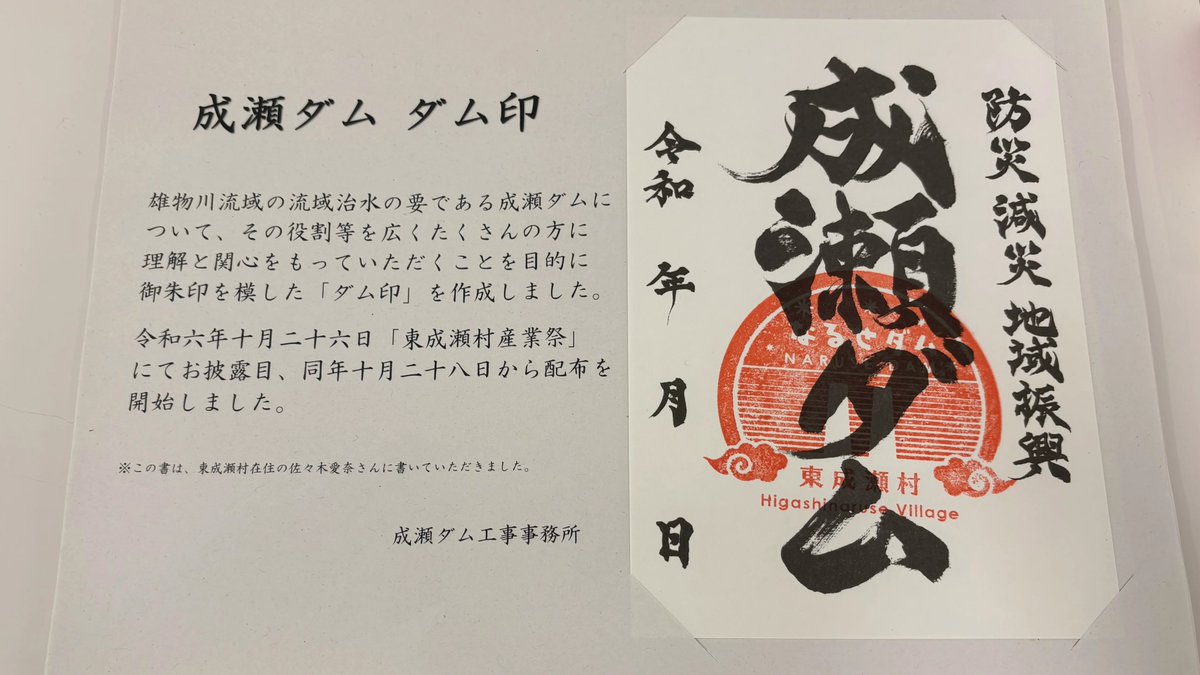 成瀬ダム ダム印
雄物川流域の流域治水の要である成瀬ダムに
ついて、その役割等を広くたくさんの方に
理解と関心をもっていただくことを目的に
御朱印を模した「ダム印」を作成しました。
令和六年十月二十六日「東成瀬村産業祭」
にてお披露目、同年十月二十八日から配布を
開始しました。
※この書は、東成瀬村在住の佐々木愛奈さんに書いていただきました。
成瀬ダム工事事務所
防災減災地域振興
成瀬ダム
令和 年 月 日
なるせダム
東成瀬村
Higashinaruse Village